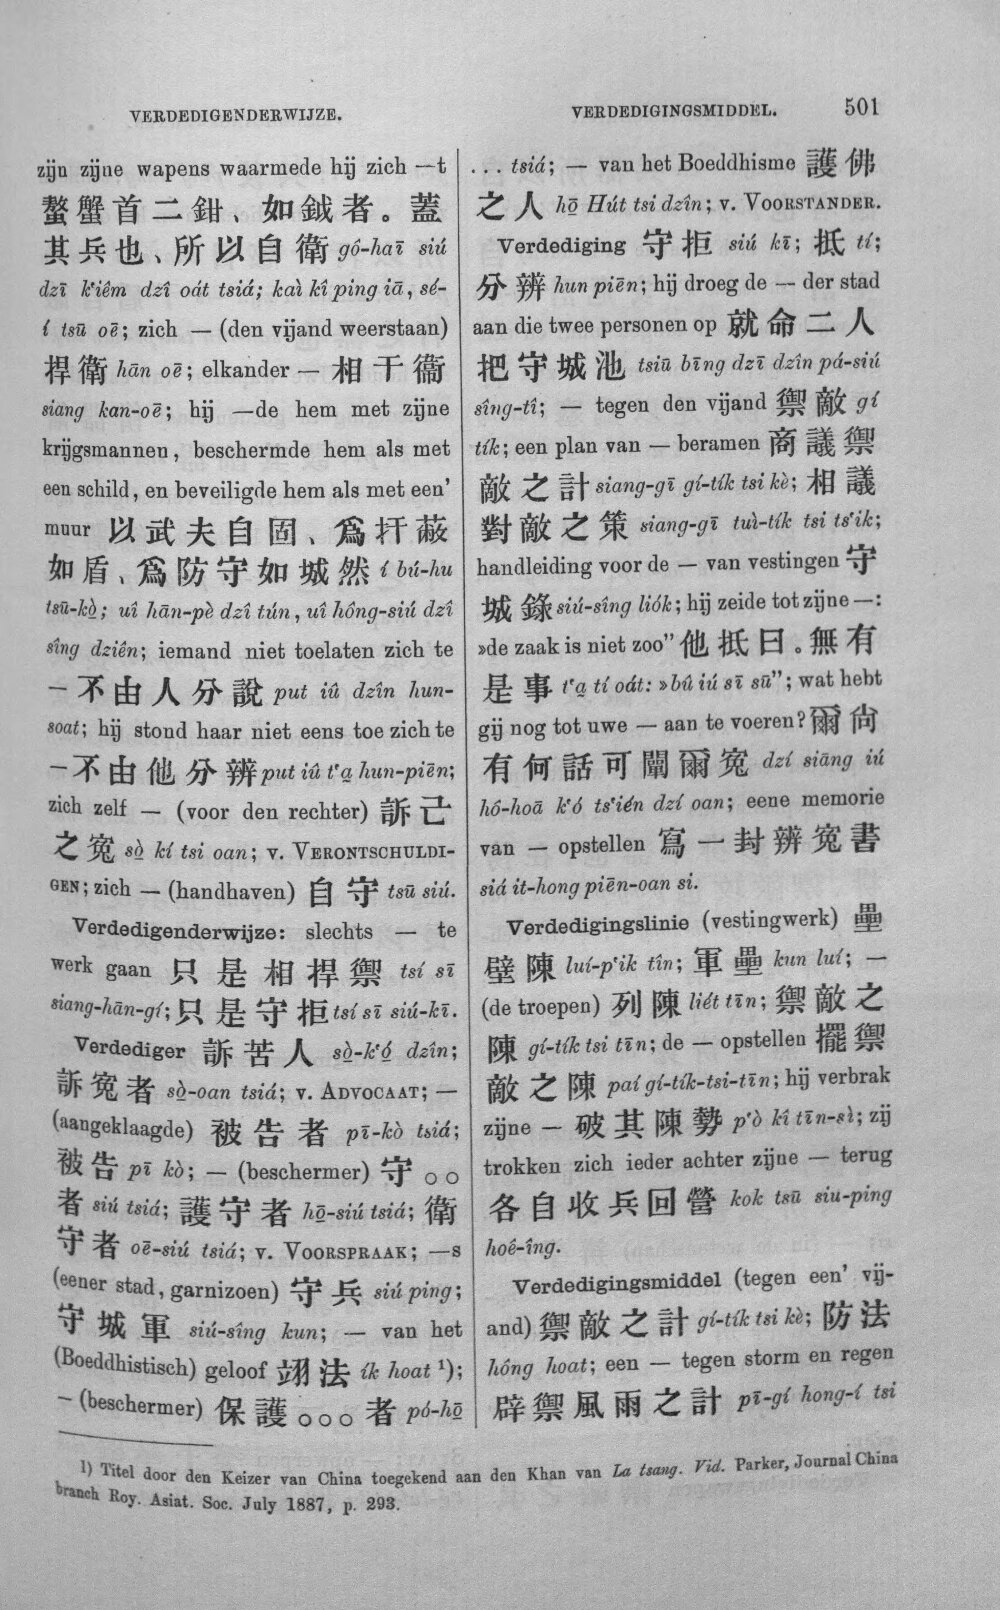 VERDEDIGENDERWIJZE.
VERDEDIGINGSMIDDEL. 501
zijn zijne wapens waarmede hij zich —t
螯蟹首二鉗、如鉞者。蓋
其兵也、所以自衛 gô-haī siú
dzī k‘iêm dzî oát tsiá; kaì kî ping iā, sé-
í tsū oē; zich — (den vijand weerstaan)
捍衛 hān oē; elkander — 相干衞
siang kan-oē; hij —de hem met zijne
krijgsmannen, beschermde hem als met
een schild, en beveiligde hem als met een’
muur 以武夫自固、爲扞蔽
如盾、爲防守如城然 í bú-hu
tsū-kò̤; uî hān-pè dzî tún, uî hông-siú dzî
sîng dziên; iemand niet toelaten zich te
— 不由人分說 put iû dzîn hun-
soat; hij stond haar niet eens toe zich te
— 不由他分辨 put iû t‘a̤ hun-piēn;
zich zelf — (voor den rechter) 訴己
之寃 sò̤ kí tsi oan; v. VERONTSCHULDI-
GEN; zich — (handhaven) 自守 tsū siú.
Verdedigenderwijze: slechts — te
werk gaan 只是相捍禦 tsí sī
siang-hān-gí; 只是守拒 tsí sī siú-kī.
Verdediger 訴苦人 sò̤-k‘ó̤ dzîn;
訴寃者 sò̤-oan tsiá; v. ADVOCAAT; —
(aangeklaagde) 被告者 pī-kò tsiá;
被告 pī kò; — (beschermer) 守○○
者 siú tsiá; 護守者 hō̤-siú tsiá; 衛
守者 oē-siú tsiá; v. VOORSPRAAK; —s
(eener stad, garnizoen) 守兵 siú ping;
守城軍 siú-sîng kun; — van het
(Boeddhistisch) geloof 翊法 ík hoat ¹);
— (beschermer) 保護○○○者 pó-hō̤
... tsiá; — van het Boeddhisme 護佛
之人 hō̤ Hút tsi dzîn; v. VOORSTANDER.
Verdediging 守拒 siú kī; 抵 tí;
分辨 hun piēn; hij droeg de — der stad
aan die twee personen op 就命二人
把守城池 tsiū bīng dzī dzîn pá-siú
sîng-tî; — tegen den vijand 禦敵 gí
tík; een plan van — beramen 商議禦
敵之計 siang-gī gí-tík tsi kè; 相議
對敵之策 siang-gī tuì-tík tsi ts‘ik;
handleiding voor de — van vestingen 守
城錄 siú-sîng liók; hij zeide tot zijne —:
»de zaak is niet zoo” 他抵曰。無有
是事 t‘a̤ tí oát: »bû iú sī sū”; wat hebt
gij nog tot uwe — aan te voeren? 爾尙
有何話可闡爾寃 dzí siāng iú
hô-hoā k‘ó ts‘ién dzí oan; eene memorie
van — opstellen 寫一封辨寃書
siá it-hong piēn-oan si.
Verdedigingslinie (vestingwerk) 壘
壁陳 luí-p‘ik tîn; 軍壘 kun luí; —
(de troepen) 列陳 liét tīn; 禦敵之
陳 gí-tík tsi tīn; de — opstellen 擺禦
敵之陳 paí gí-tík-tsi-tīn; hij verbrak
zijne — 破其陳勢 p‘ò kî tīn-sì; zij
trokken zich ieder achter zijne — terug
各自收兵回營 kok tsū siu-ping
hoê-îng.
Verdedigingsmiddel (tegen een’ vij-
and) 禦敵之計 gí-tík tsi kè; 防法
hóng hoat; een — tegen storm en regen
辟禦風雨之計 pī-gí hong-í tsi
1) Titel door den Keizer van China toegekend aan den Khan van La tsang. Vid. Parker, Journal China
branch Roy. Asiat. Soc. July 1887, p. 293.